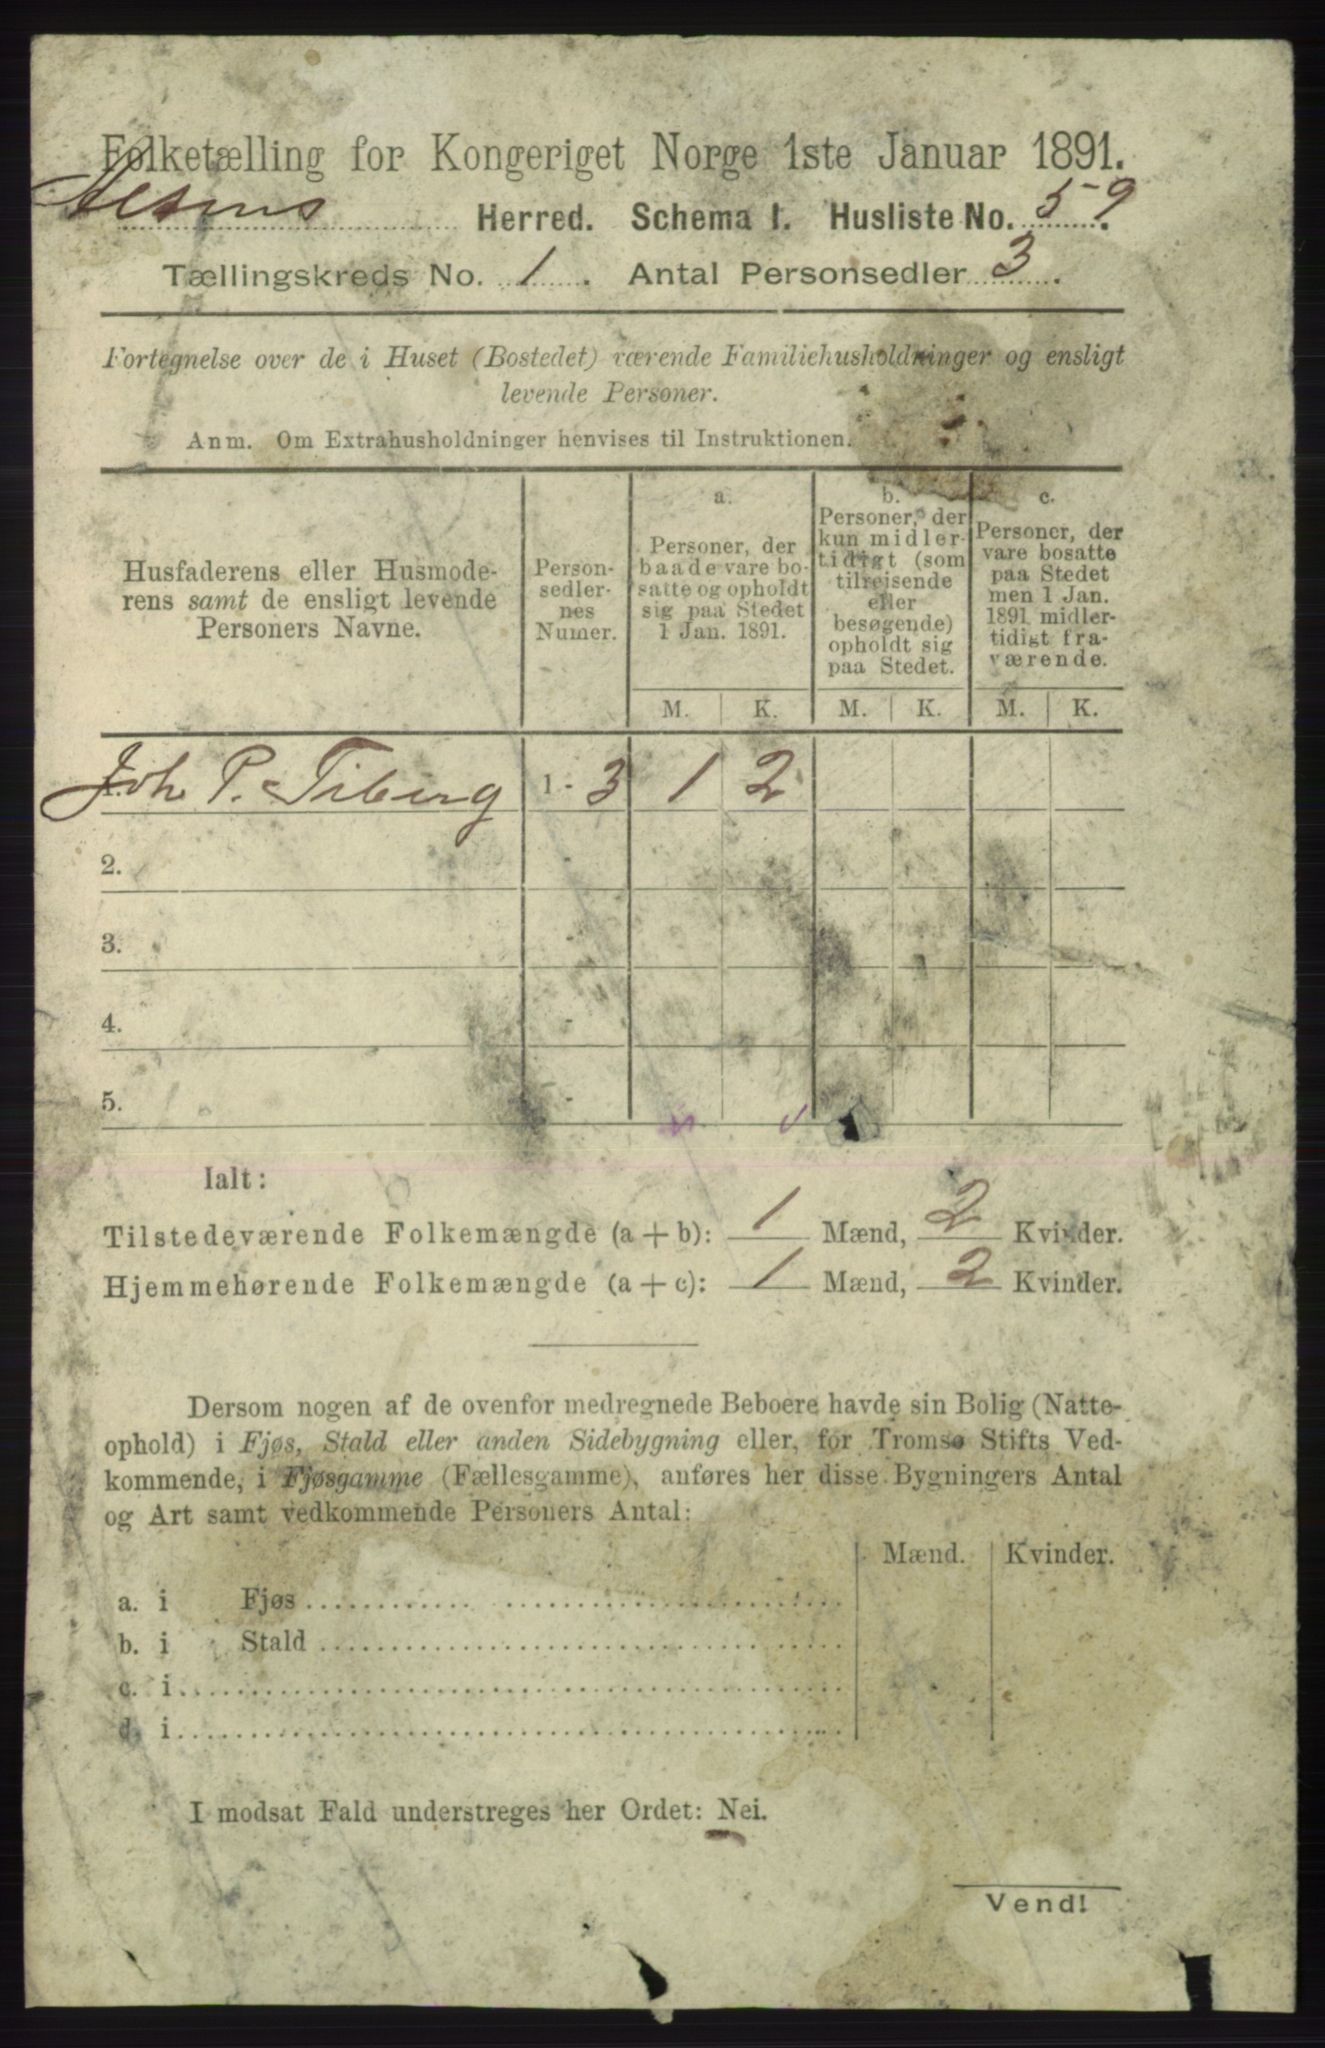 Folketælling for Kongeriget Norge 1ste Januar 1891.
Altens Herred. Schema I. Husliste No. 59.
Tællingskreds No. 1. Antal Personsedler 3.
Fortegnelse over de i Huset (Bostedet) værende Familiehusholdninger og ensligt
levende Personer.
Anm. Om Extrahusholdninger henvises til Instruktionen.
Husfaderens eller Husmode-
rens samt de ensligt levende
Personers Navne.
Person-
sedler-
nes
Numer.
a.
Personer, der
baade vare bo-
satte og opholdt
sig paa Stedet
1 Jan. 1891.
b.
Personer, der
kun midler-
tidigt (som
tilreisende
eller
besøgende)
opholdt sig
paa Stedet.
c.
Personer, der
vare bosatte
paa Stedet
men 1 Jan.
1891 midler-
tidigt fra-
værende.
M. K. M. K. M. K.
1. Joh. P. Tiberg 1 - 3 1 2
2. -
3. -
4. -
5. -
Ialt:
Tilstedeværende Folkemængde (a + b): 1 Mænd, 2 Kvinder.
Hjemmehørende Folkemængde (a + c): 1 Mænd, 2 Kvinder.
Dersom nogen af de ovenfor medregnede Beboere havde sin Bolig (Natte-
ophold) i Fjøs, Stald eller anden Sidebygning eller, for Tromsø Stifts Ved-
kommende, i Fjøsgamme (Fællesgamme), anføres her disse Bygningers Antal
og Art samt vedkommende Personers Antal:
Mænd. Kvinder.
a. i Fjøs
b. i Stald
c. i
d. i
I modsat Fald understreges her Ordet: Nei.
Vend!